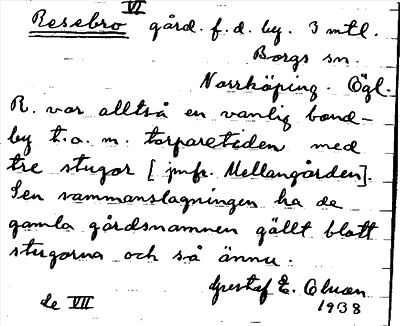 VI
Resebro gård. f. d. by. 3 mtl.
Borgs sn.
Norrköping. Ögl.
R. var alltså en vanlig bond-
by t.o.m. torparetiden med
tre stugor [jmfr. Mellangården].
Sen sammanslagningen ha de
gamla gårdsnamnen gällt blott
stugorna och så ännu.
Gustaf E.
1938
de VII